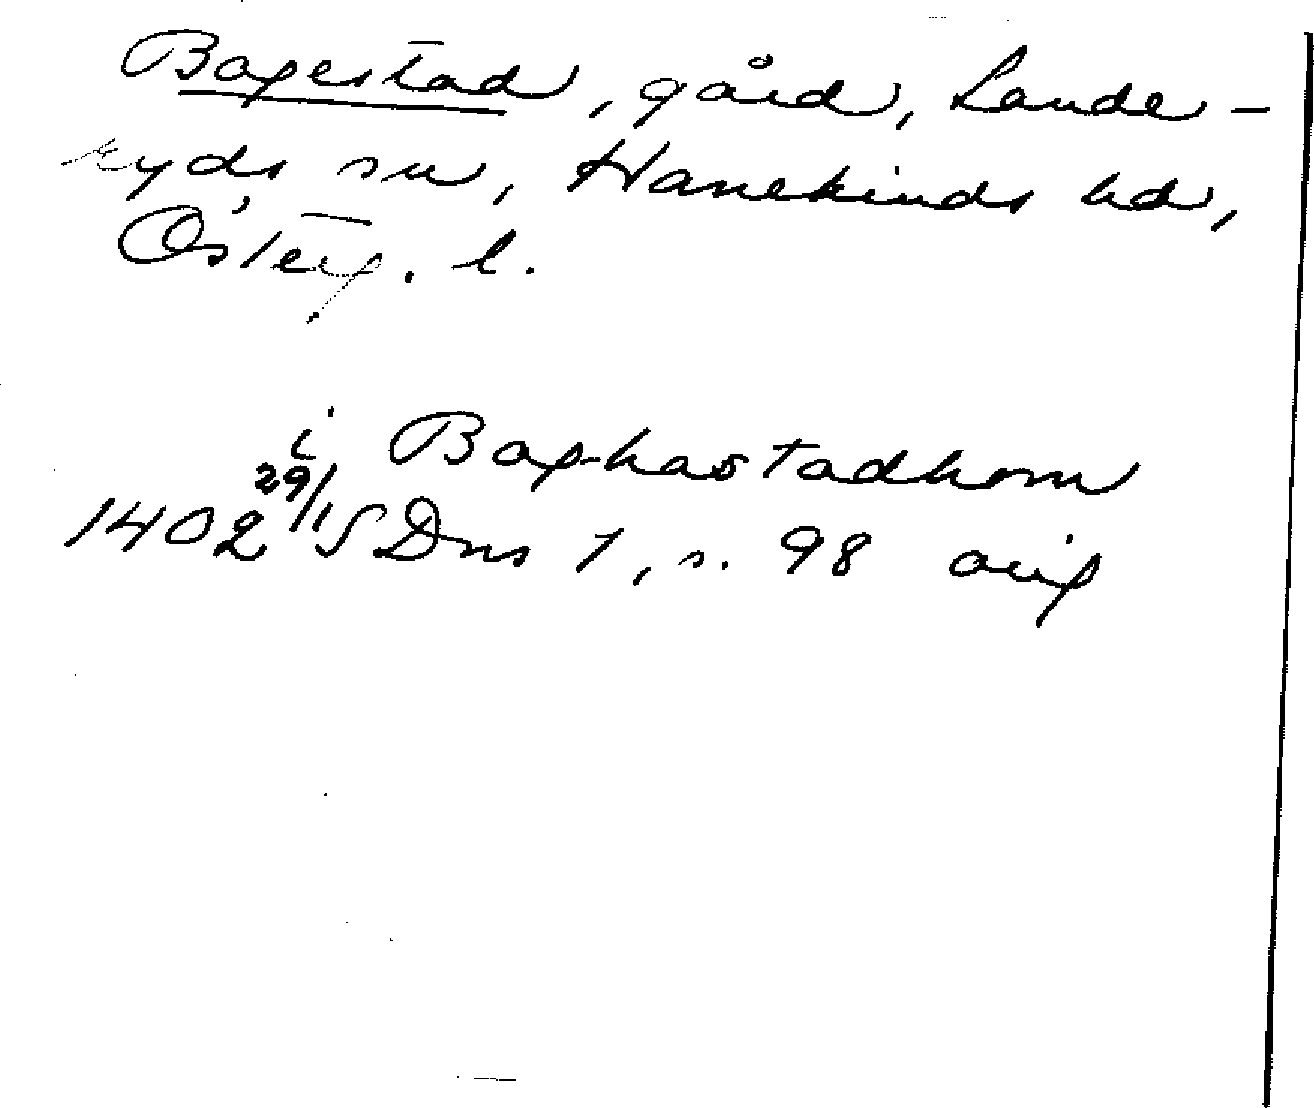 Bagestad, gård, Lande-
ryds sn, Hanekinds hd,
Österg. l.
i Baghastadhom
1402 29/1 SDns 1, s. 98 orig